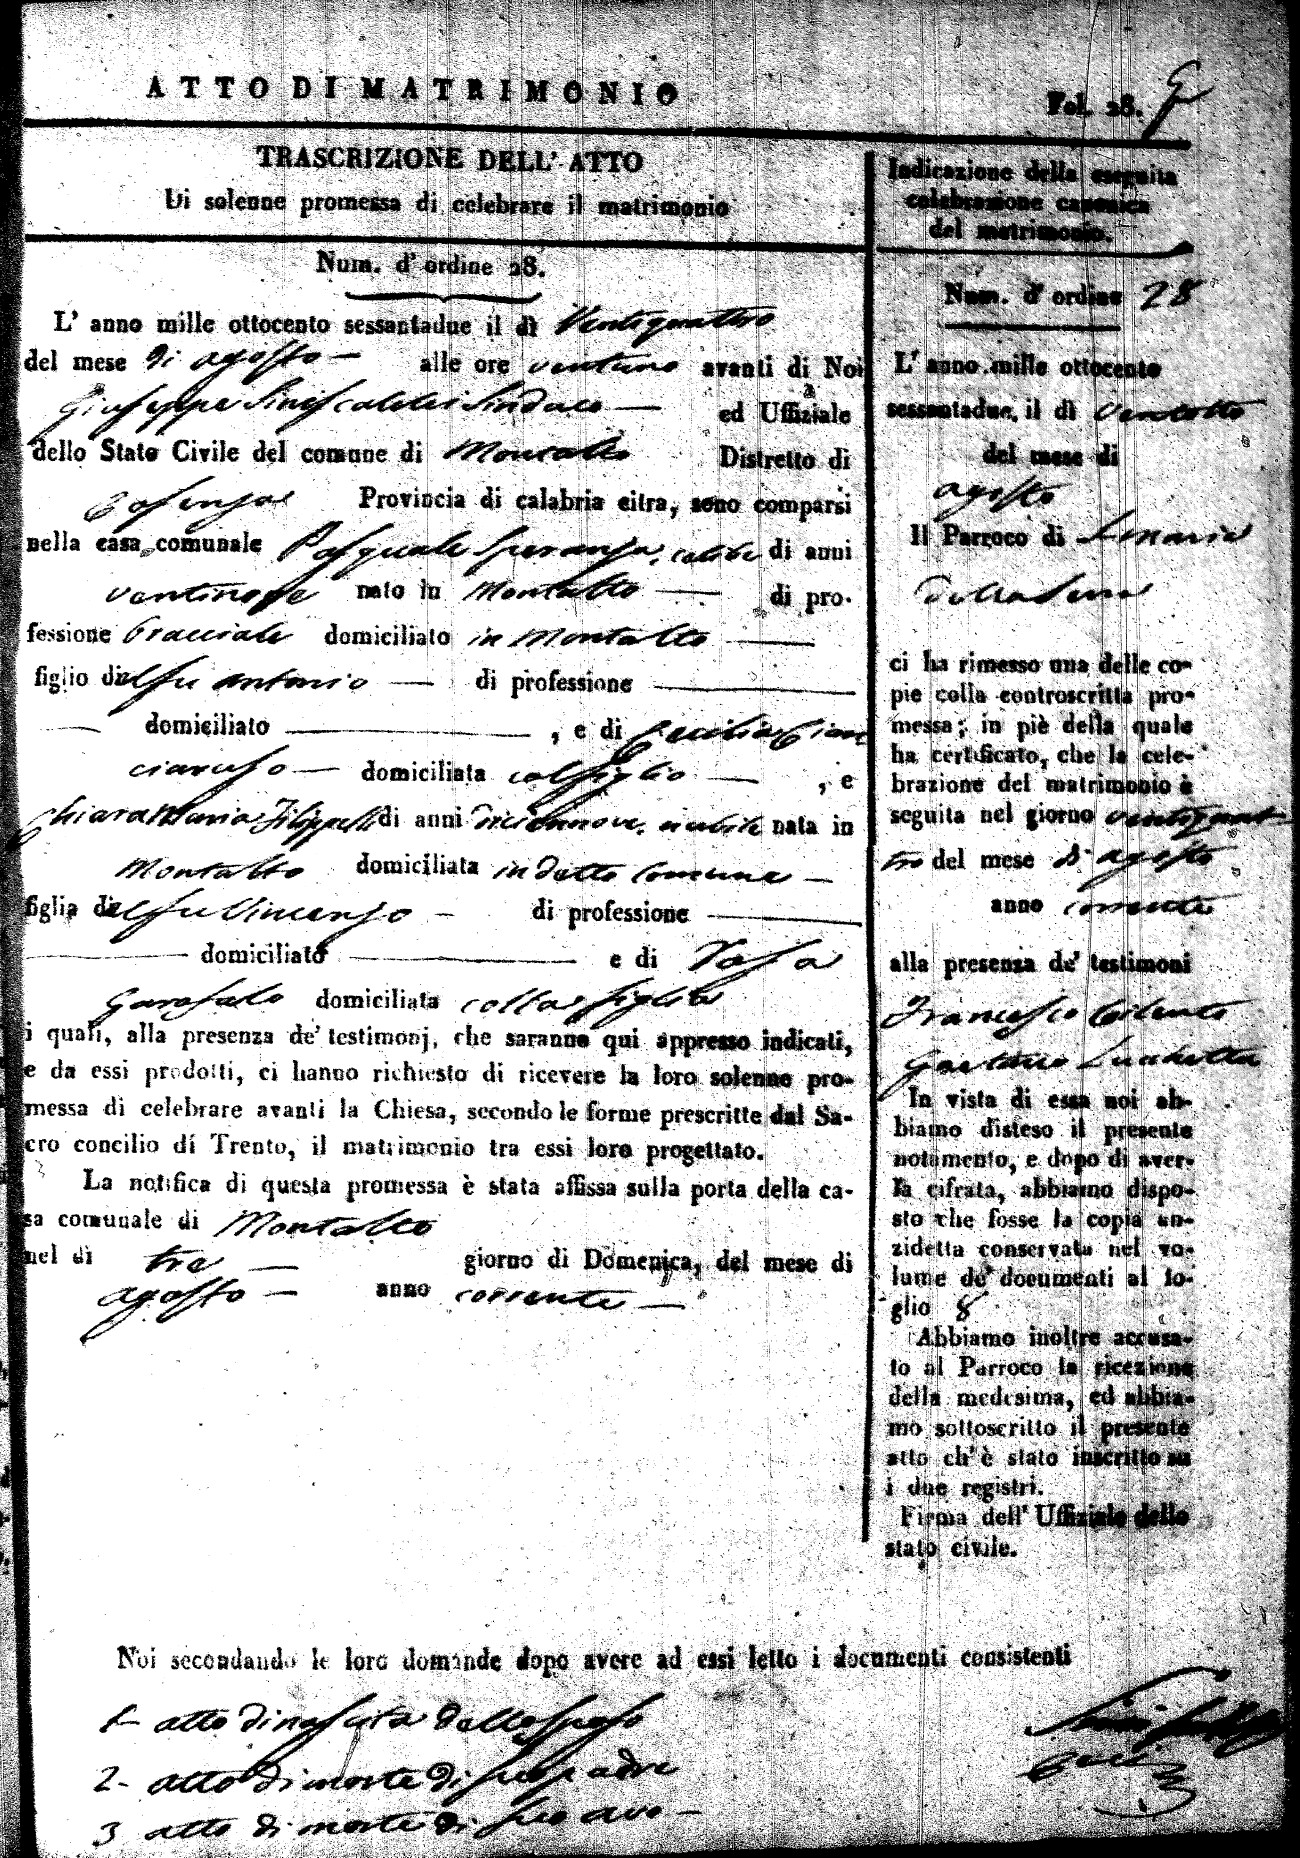 ATTO DI MATRIMONIO
Fol. 28.
TRASCRIZIONE DELL' ATTO
Di solenne promessa di celebrare il matrimonio
Num. d' ordine 28.
L' anno mille ottocento sessantadue il dì Ventiquattro
del mese di agosto — alle ore ventuno avanti di Noi
Giuseppe Siniscalchi Sindaco — ed Uffiziale
dello Stato Civile del comune di Montalto Distretto di
Cosenza Provincia di calabria citra, sono comparsi
nella casa comunale Pasquale Speranza, celibe di anni
ventinove nato in Montalto — di pro-
fessione bracciale domiciliato in Montalto —
figlio del fu Antonio — di professione —
— domiciliato — , e di Cecilia Cian
ciaruso — domiciliata col figlio — , e
Chiara Maria Filippelli di anni diciannove, nubile nata in
Montalto domiciliata in detto Comune —
figlia del fu Vincenzo — di professione —
— domiciliato — e di Rosa
Garofalo domiciliata colla figlia
i quali, alla presenza de' testimonj, che saranno qui appresso indicati,
e da essi prodotti, ci hanno richiesto di ricevere la loro solenne pro-
messa di celebrare avanti la Chiesa, secondo le forme prescritte dal Sa-
cro concilio di Trento, il matrimonio tra essi loro progettato.
La notifica di questa promessa è stata affissa sulla porta della ca-
sa comunale di Montalto
nel dì tre — giorno di Domenica, del mese di
agosto — anno corrente —
Indicazione della eseguita
celebrazione canonica
del matrimonio.
Num. d' ordine 28
L' anno mille ottocento
sessantadue, il dì ventotto
del mese di
agosto
Il Parroco di S. Maria
della Serra
ci ha rimesso una delle co-
pie colla controscritta pro-
messa; in piè della quale
ha certificato, che la cele-
brazione del matrimonio è
seguita nel giorno ventiquat
tro del mese di agosto
anno corrente
alla presenza de' testimoni
Francesco Cilento
Gaetano Luchetta
In vista di essa noi ab-
biamo disteso il presente
notamento, e dopo di aver-
la cifrata, abbiamo dispo-
sto che fosse la copia an-
zidetta conservata nel vo-
lume de' documenti al fo-
glio 8
Abbiamo inoltre accusa-
to al Parroco la ricezione
della medesima, ed abbia-
mo sottoscritto il presente
atto ch' è stato inscritto su
i due registri.
Firma dell' Uffiziale dello
stato civile.
Noi secondando le loro domande dopo avere ad essi letto i documenti consistenti
1- atto di nascita dello sposo
2- atto di morte di suo padre
3 atto di morte di suo avo —